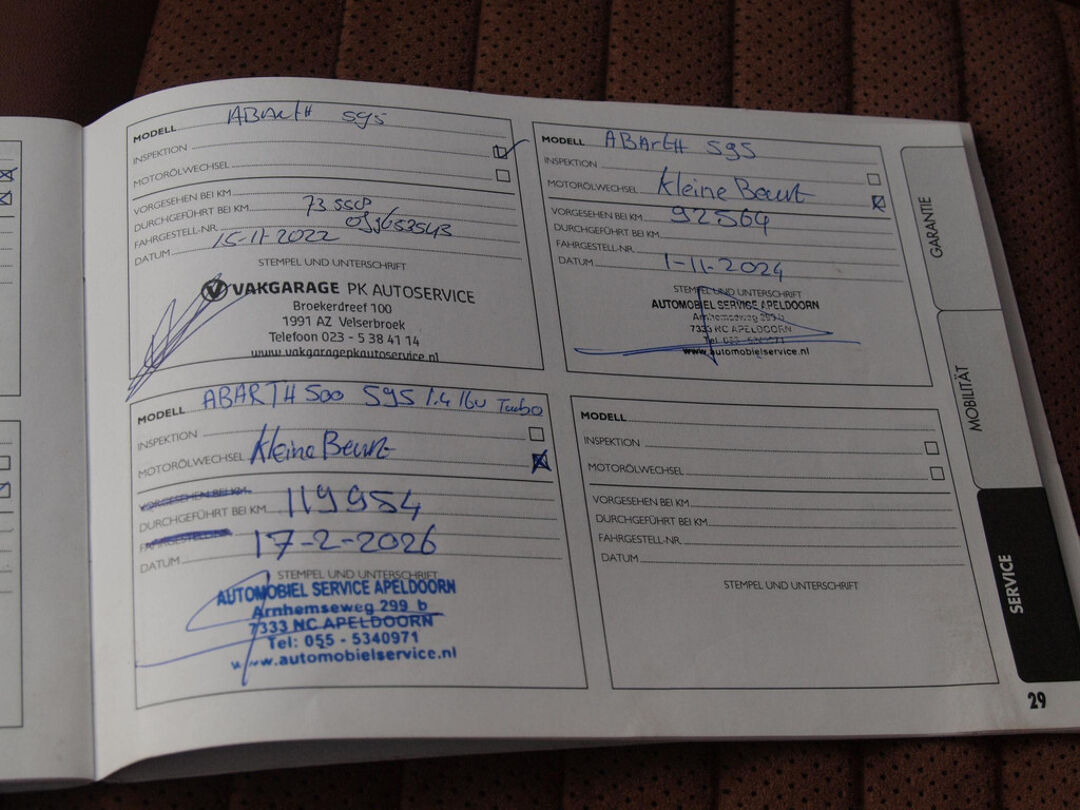 MODELL ABARTH 595
INSPEKTION
MOTORÖLWECHSEL
VORGESEHEN BEI KM
DURCHGEFÜHRT BEI KM
FAHRGESTELL-NR.
DATUM 15-11-2022
STEMPEL UND UNTERSCHRIFT
VAKGARAGE PK AUTOSERVICE
Broekerdreef 100
1991 AZ Velserbroek
Telefoon 023 - 5 38 41 14
www.vakgaragepkautoservice.nl
MODELL ABARTH 595
INSPEKTION
MOTORÖLWECHSEL Kleine Beurt
VORGESEHEN BEI KM 92564
DURCHGEFÜHRT BEI KM
FAHRGESTELL-NR.
DATUM 1-11-2024
STEMPEL UND UNTERSCHRIFT
AUTOMOBIEL SERVICE APELDOORN
Arnhemseweg 299 b
7333 NC APELDOORN
Tel: 055 - 5340971
www.automobielservice.nl
MODELL ABARTH 500 595 1.4 16v Turbo
INSPEKTION
MOTORÖLWECHSEL Kleine Beurt
VORGESEHEN BEI KM
DURCHGEFÜHRT BEI KM 119954
FAHRGESTELL-NR.
DATUM 17-2-2026
STEMPEL UND UNTERSCHRIFT
AUTOMOBIEL SERVICE APELDOORN
Arnhemseweg 299 b
7333 NC APELDOORN
Tel: 055 - 5340971
www.automobielservice.nl
MODELL
INSPEKTION
MOTORÖLWECHSEL
VORGESEHEN BEI KM
DURCHGEFÜHRT BEI KM
FAHRGESTELL-NR.
DATUM
STEMPEL UND UNTERSCHRIFT
GARANTIE
MOBILITÄT
SERVICE
29